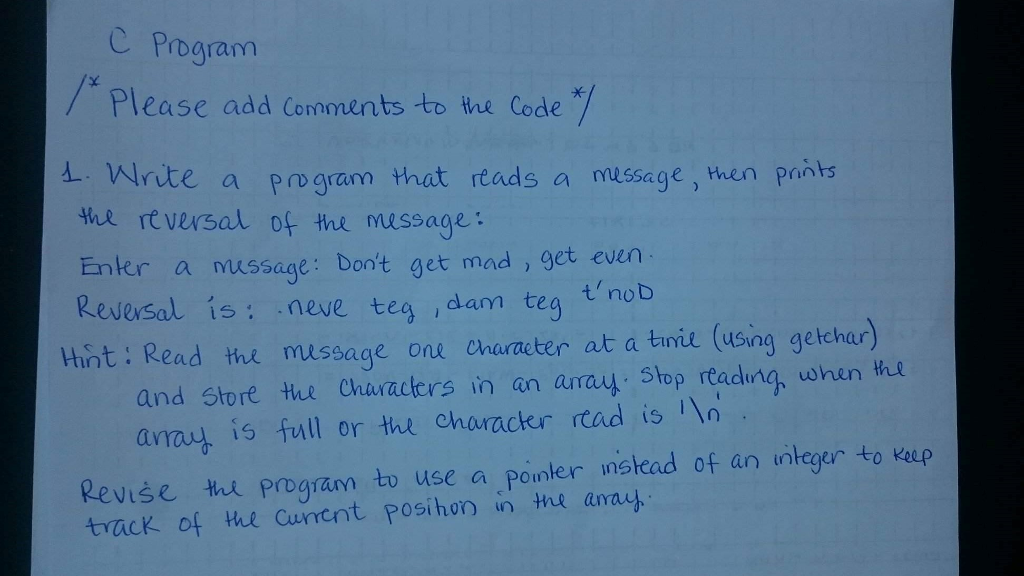 C Program
/* Please add Comments to the Code */
1. Write a program that reads a message, then prints
the reversal of the message:
Enter a message: Don't get mad, get even.
Reversal is: .neve teg ,dam teg t'noD
Hint: Read the message one character at a time (using getchar)
and store the characters in an array. Stop reading when the
array is full or the character read is '\n'.
Revise the program to use a pointer instead of an integer to keep
track of the current position in the array.